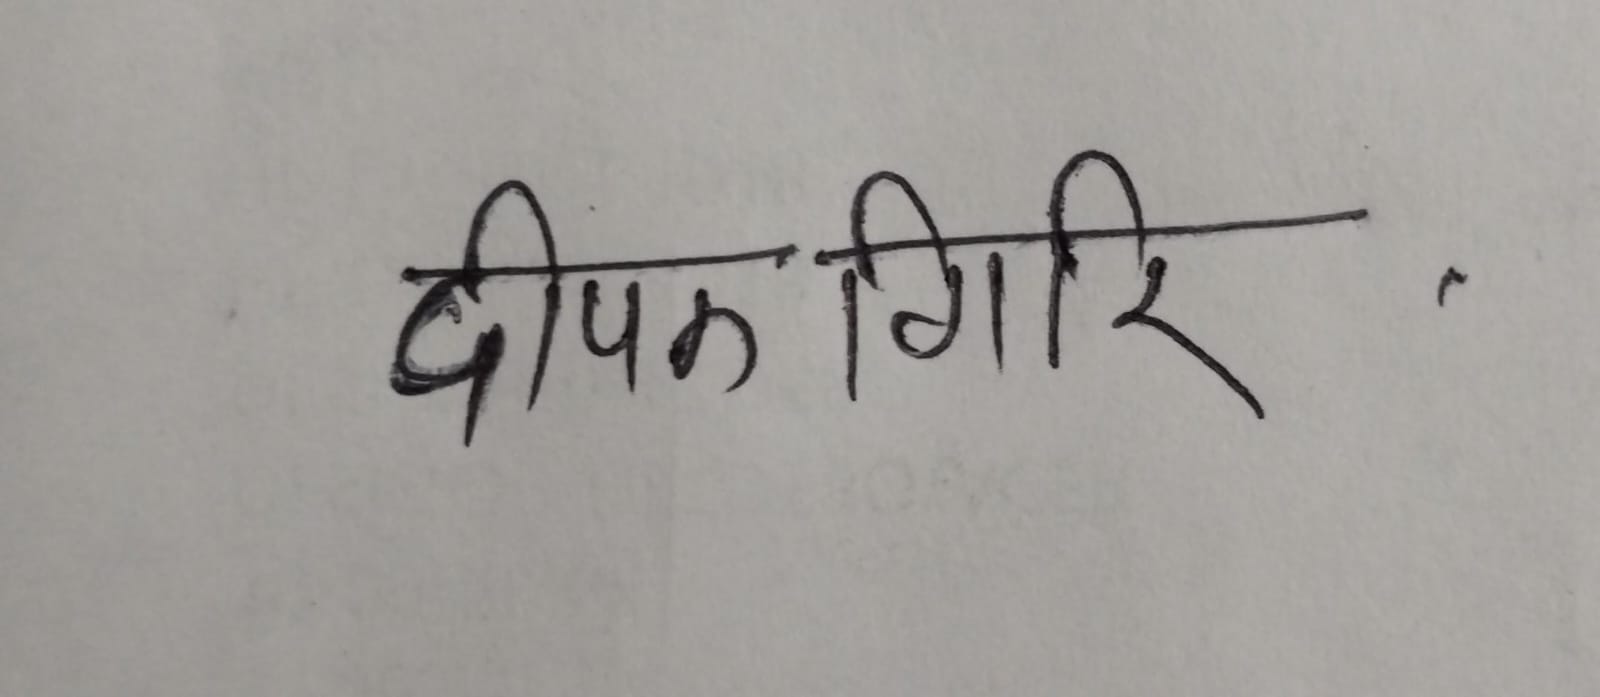 दीपक गिरि